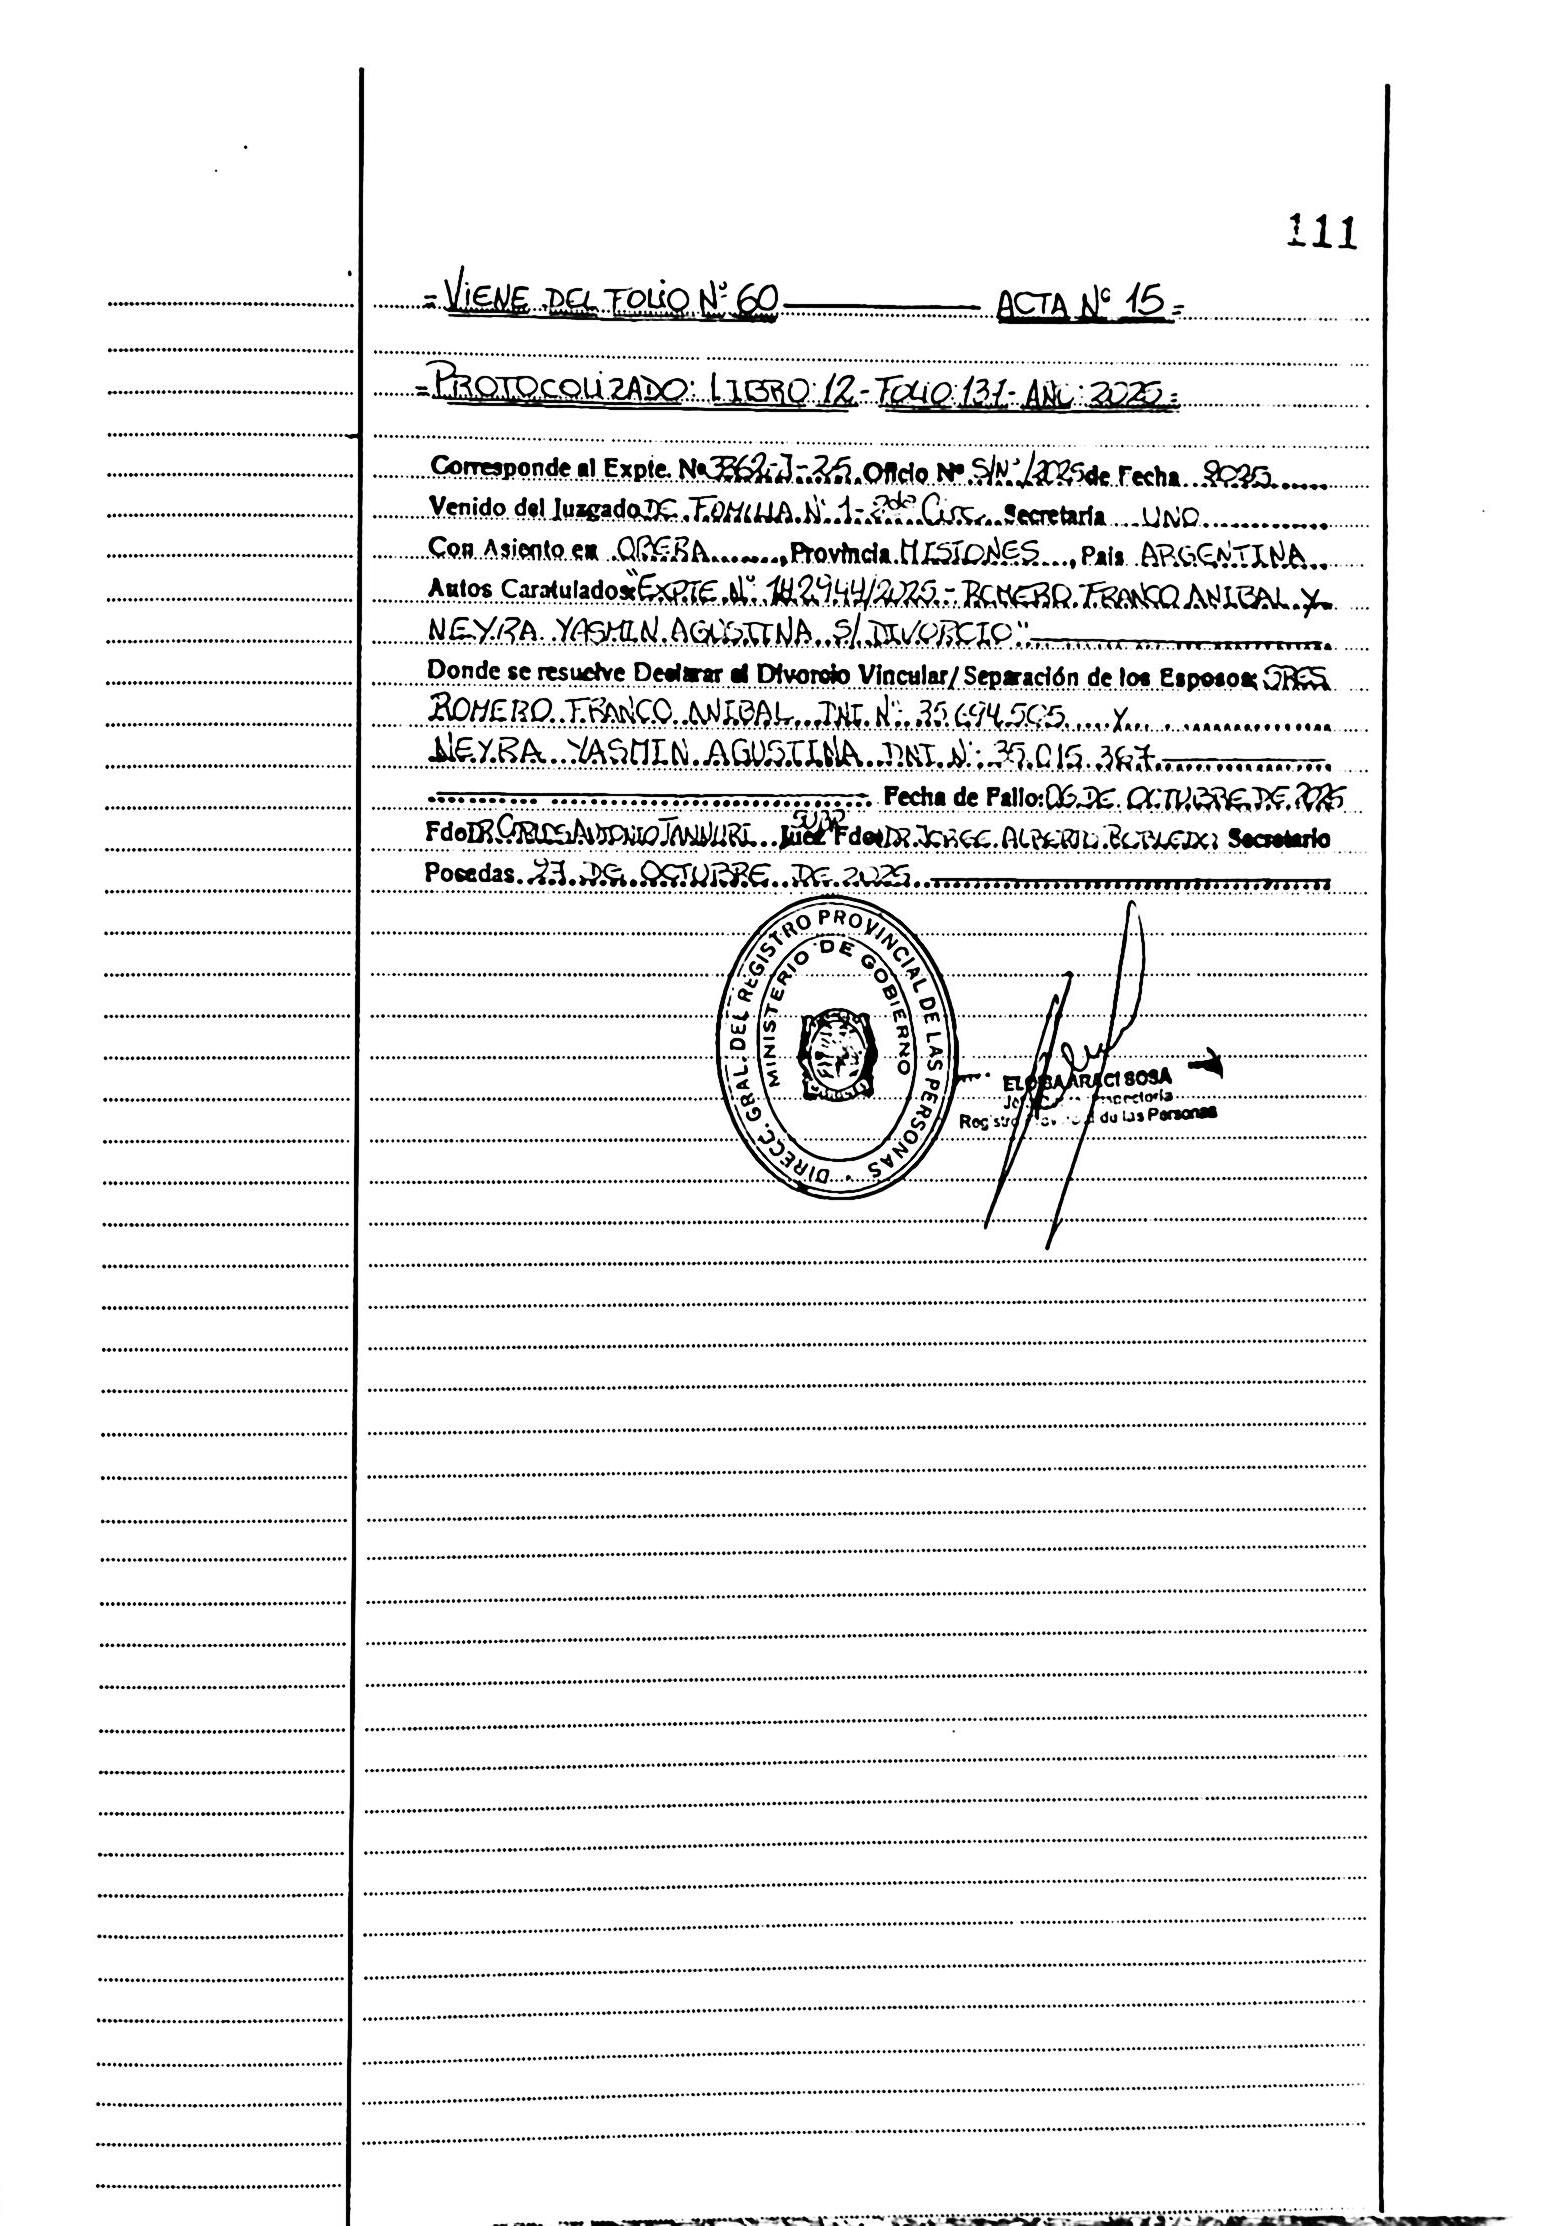 111
= VIENE DEL FOLIO Nº 60 ——— ACTA Nº 15 =
= PROTOCOLIZADO: LIBRO: 12 - FOLIO: 131 - AÑO: 2025 =
Corresponde al Expte. Nº 3362-J-25 Oficio Nº S/Nº/2025 de Fecha 2025
Venido del Juzgado DE FAMILIA Nº 1 - 2da Circ. Secretaría UNO
Con Asiento en OBERA, Provincia MISIONES, País ARGENTINA
Autos Caratulados: "EXPTE Nº 142944/2025 - ROMERO FRANCO ANIBAL Y
NEYRA YASMIN AGUSTINA S/ DIVORCIO"
Donde se resuelve Declarar el Divorcio Vincular/Separación de los Esposos: SRES
ROMERO FRANCO ANIBAL DNI Nº: 35.694.505 Y
NEYRA YASMIN AGUSTINA DNI Nº: 35.015.367
Fecha de Fallo: 06 DE OCTUBRE DE 2025
Fdo DR. CARLOS ANTONIO Juez SUBR Fdo DR. JORGE ALBERTO Secretario
Posadas 27 DE OCTUBRE DE 2025
DIRECC. GRAL. DEL REGISTRO PROVINCIAL DE LAS PERSONAS
MINISTERIO DE GOBIERNO
ARACI SOSA
Registro Provincial de las Personas